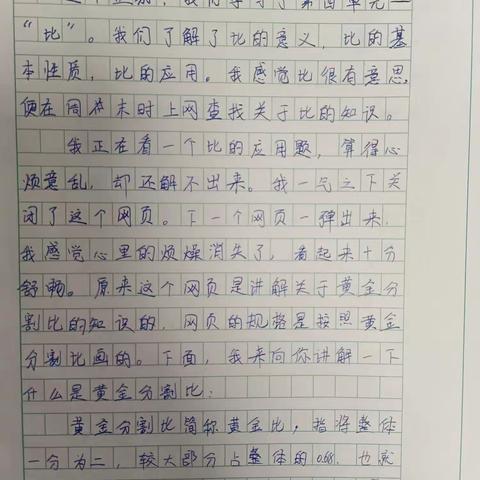 这个星期，我们学习了第四单元——
“比”。我们了解了比的意义，比的基
本性质，比的应用。我感觉比很有意思，
便在周末时上网查找关于比的知识。
我正在看一个比的应用题，算得心
烦意乱，却还解不出来。我一气之下关
闭了这个网页。下一个网页一弹出来，
我感觉心里的烦燥消失了，看起来十分
舒畅。原来这个网页是讲解关于黄金分
割比的知识的，网页的规格是按照黄金
分割比画的。下面，我来向你讲解一下
什么是黄金分割比：
黄金分割比简称黄金比，指将整体
一分为二，较大部分占整体的0.68，也就